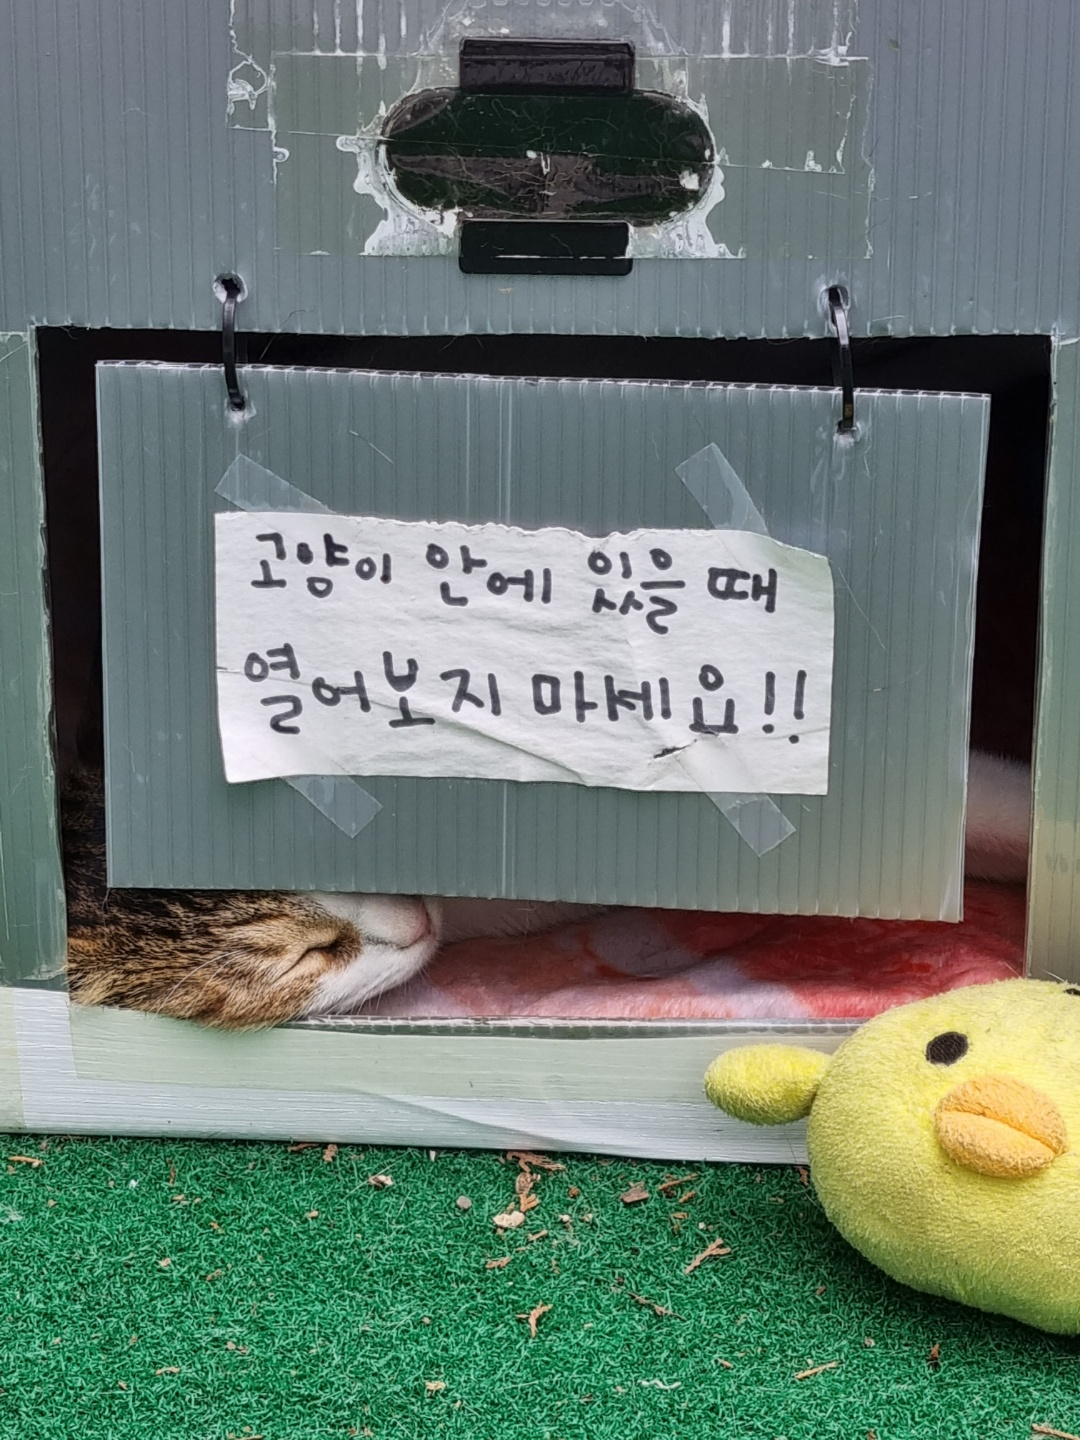 고양이 안에 있을 때
열어보지 마세요!!